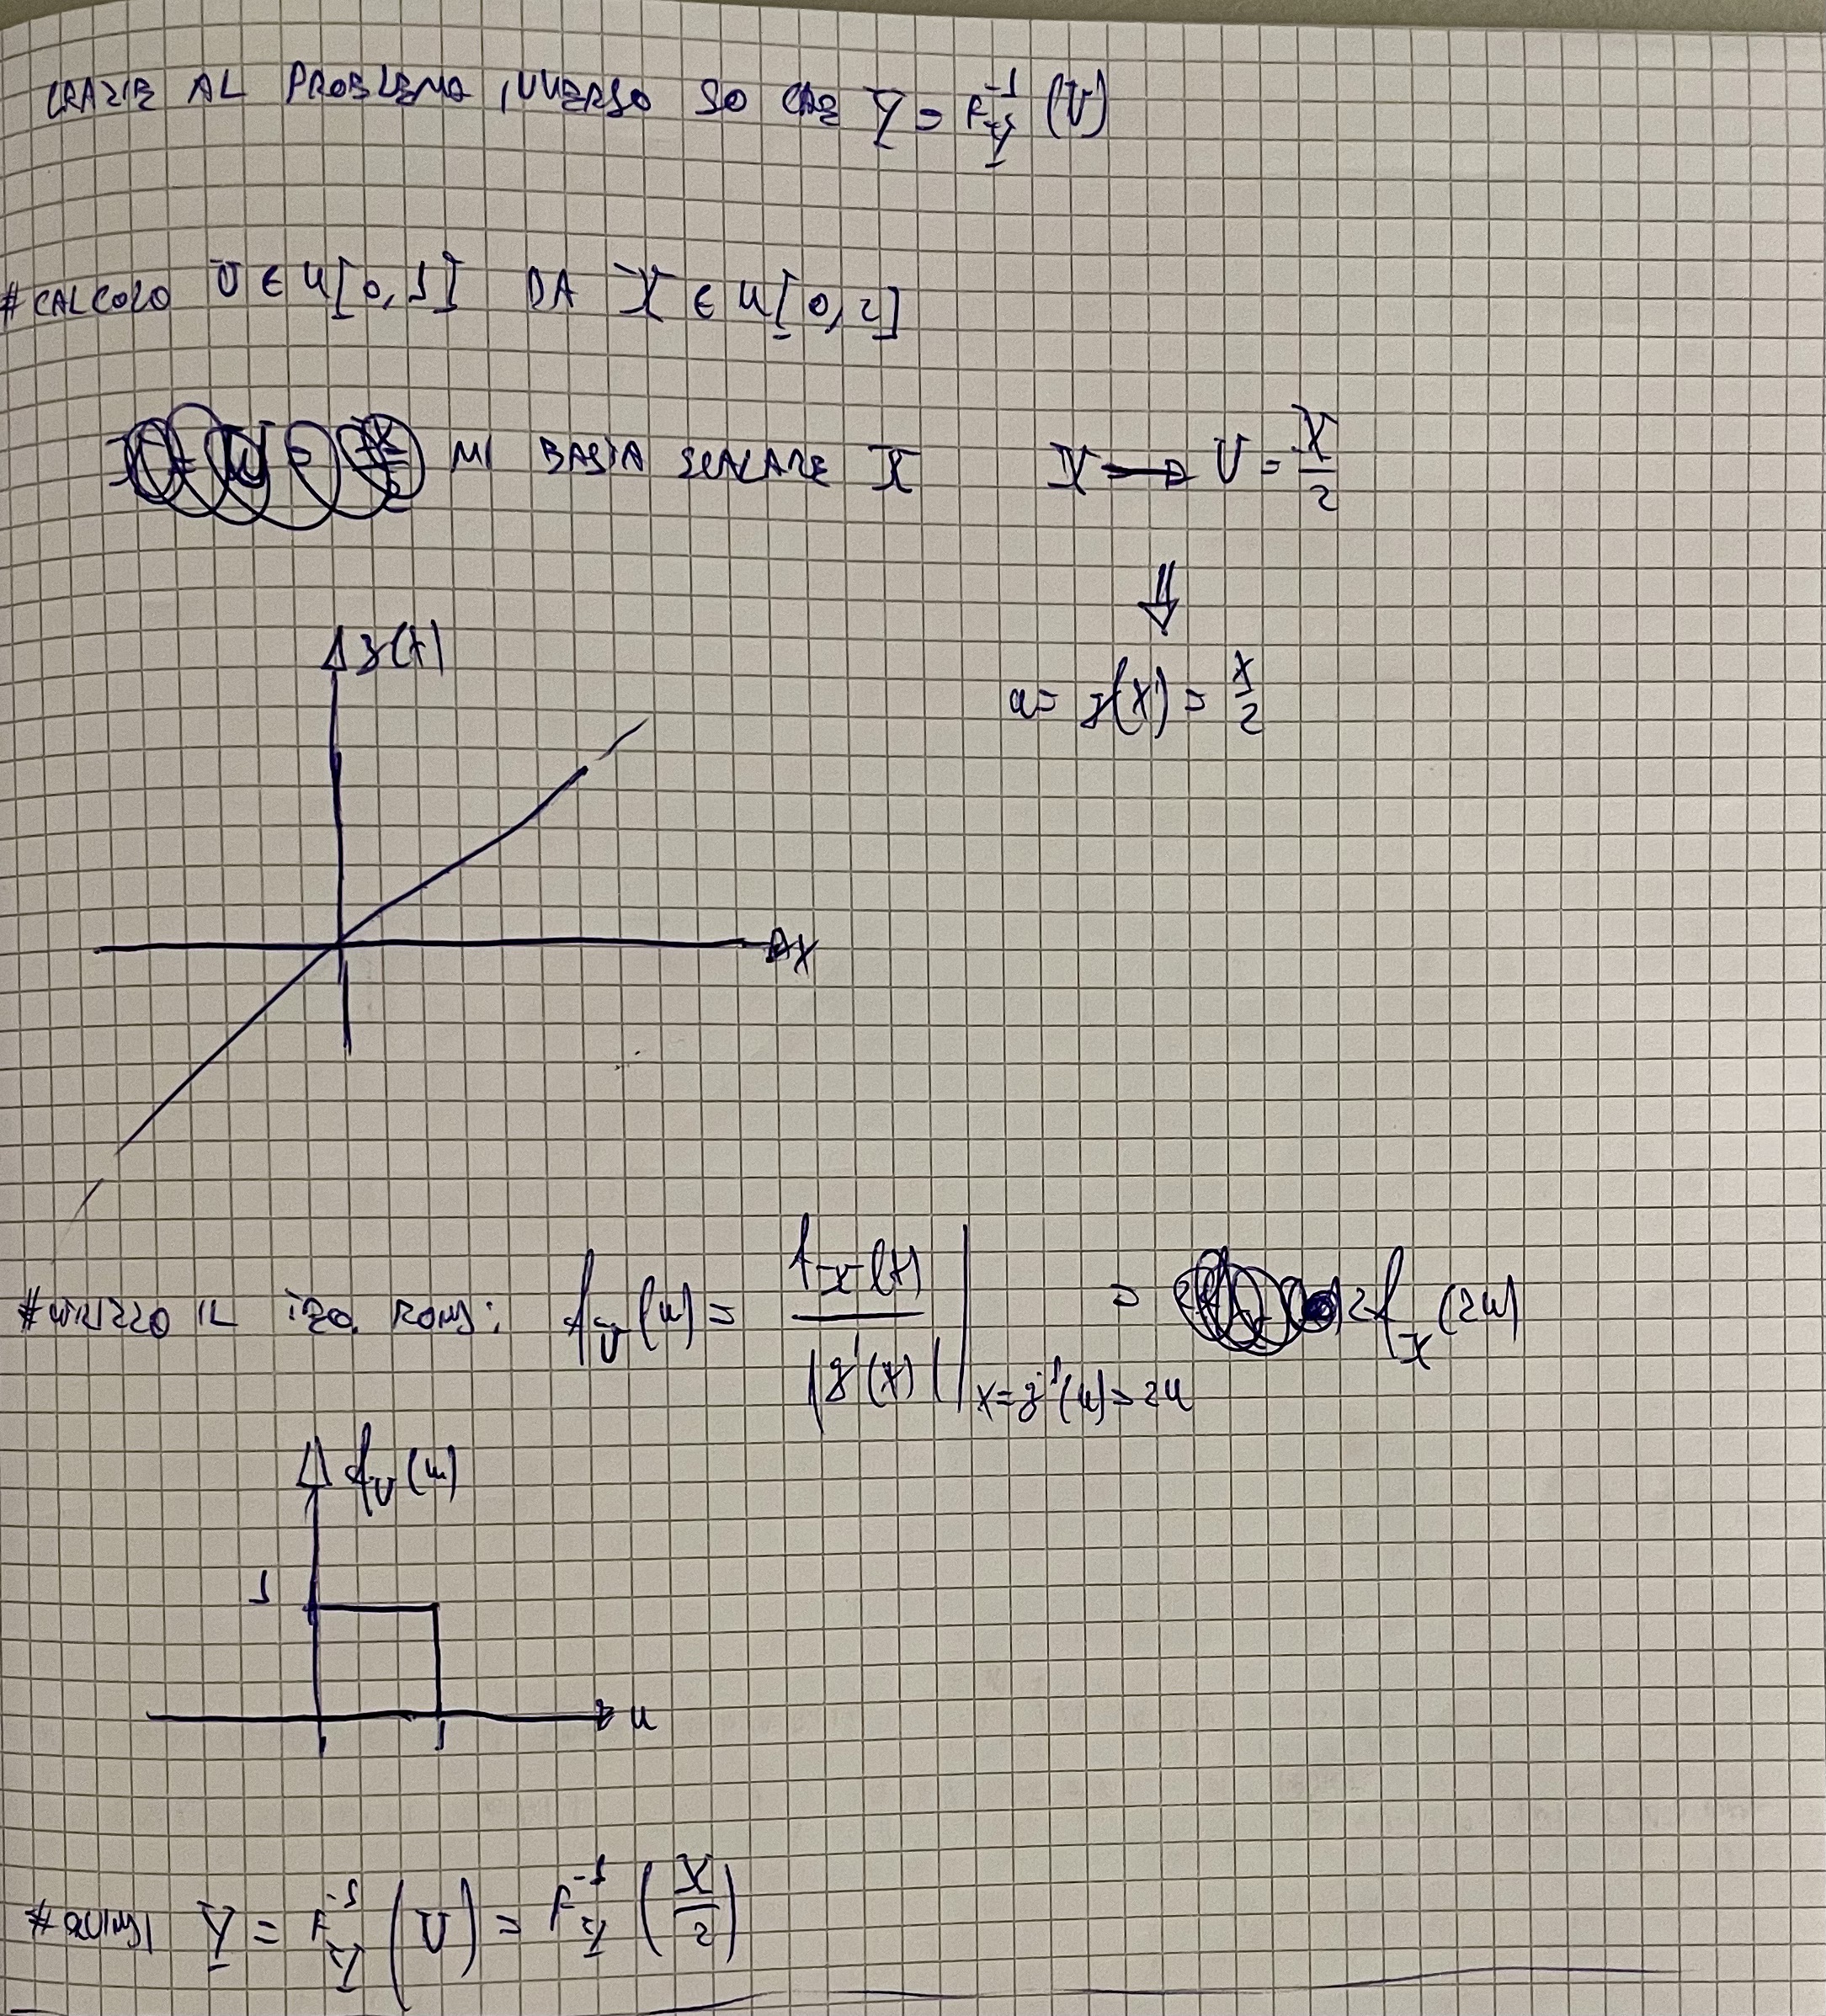 GRAZIE AL PROBLEMA INVERSO SO CHE Y = F_Y^-1 (U)
# CALCOLO U ∈ U[0,1] DA X ∈ U[0,2]
MI BASTA SCALARE X X → U = X/2
⇓
g(x)
u = g(x) = x/2
x
# UTILIZZO IL TEO. FOND: f_U(u) = f_X(x) / |g'(x)| | x = g^-1(u) = 2u = 2 f_X (2u)
f_U(u)
1
1
u
# QUINDI Y = F_Y^-1 (U) = F_Y^-1 (X/2)